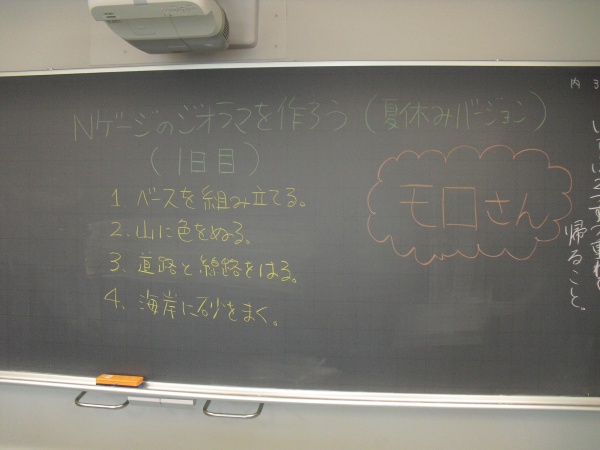 Nゲージのジオラマを作ろう(夏休みバージョン)
(1日目)
1. ベースを組み立てる。
2. 山に色をぬる。
3. 道路と線路をはる。
4. 海岸に砂をまく。
モロさん
帰ること。